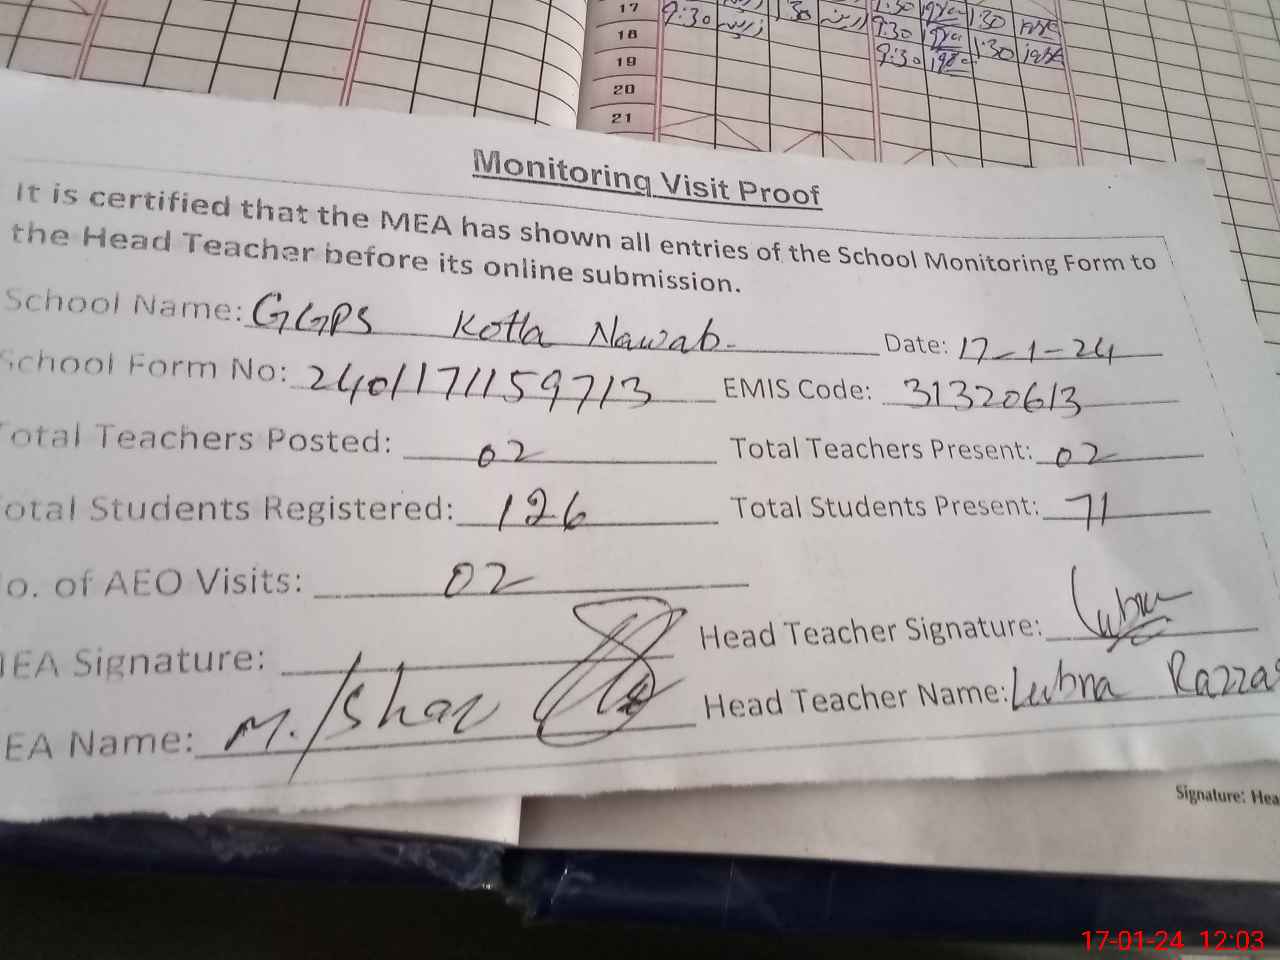 17 9:30 1:30 1:30
18 9:30 1:30
19 9:30 1:30
20
21
Monitoring Visit Proof
It is certified that the MEA has shown all entries of the School Monitoring Form to
the Head Teacher before its online submission.
School Name: GGPS Kotla Nawab. Date: 17-1-24
School Form No: 2401171159713 EMIS Code: 31320613
Total Teachers Posted: 02 Total Teachers Present: 02
Total Students Registered: 126 Total Students Present: 71
o. of AEO Visits: 02
EA Signature: Head Teacher Signature: Lubna
EA Name: M. Ishaq Head Teacher Name: Lubna Razza
Signature: Hea
17-01-24 12:03